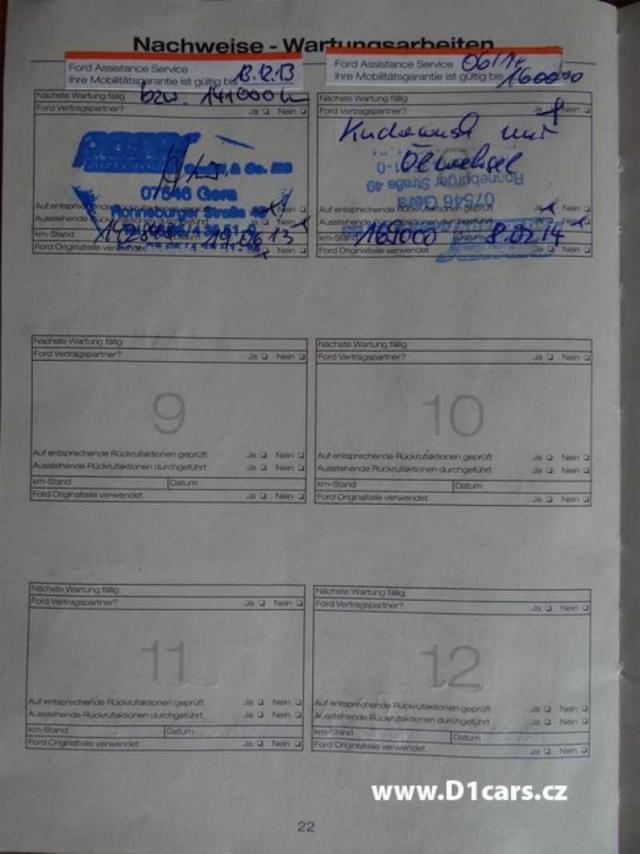 Nachweise - Wartungsarbeiten
Ford Assistance Service
Ihre Mobilitätsgarantie ist gültig bis 13.12.13
Nächste Wartung fällig bzw. 141000
Ford Vertragspartner? Ja Nein
& Co.
07546 Gera
Ronneburger Straße 49
Auf entsprechende Rückrufaktionen geprüft Ja Nein
Ausstehende Rückrufaktionen durchgeführt Ja Nein
km-Stand Datum 19.06.13
Ford Originalteile verwendet Ja Nein
Ford Assistance Service
Ihre Mobilitätsgarantie ist gültig bis 160000
Nächste Wartung fällig
Ford Vertragspartner? Ja Nein
Ölwechsel
Ronneburger Straße 49
07546 Gera
Auf entsprechende Rückrufaktionen geprüft Ja Nein
Ausstehende Rückrufaktionen durchgeführt Ja Nein
km-Stand Datum 8.02.14
Ford Originalteile verwendet Ja Nein
Nächste Wartung fällig
Ford Vertragspartner? Ja Nein
9
Auf entsprechende Rückrufaktionen geprüft Ja Nein
Ausstehende Rückrufaktionen durchgeführt Ja Nein
km-Stand Datum
Ford Originalteile verwendet Ja Nein
Nächste Wartung fällig
Ford Vertragspartner? Ja Nein
10
Auf entsprechende Rückrufaktionen geprüft Ja Nein
Ausstehende Rückrufaktionen durchgeführt Ja Nein
km-Stand Datum
Ford Originalteile verwendet Ja Nein
Nächste Wartung fällig
Ford Vertragspartner? Ja Nein
11
Auf entsprechende Rückrufaktionen geprüft Ja Nein
Ausstehende Rückrufaktionen durchgeführt Ja Nein
km-Stand Datum
Ford Originalteile verwendet Ja Nein
Nächste Wartung fällig
Ford Vertragspartner? Ja Nein
12
Auf entsprechende Rückrufaktionen geprüft Ja Nein
Ausstehende Rückrufaktionen durchgeführt Ja Nein
km-Stand Datum
Ford Originalteile verwendet Ja Nein
www.D1cars.cz
22